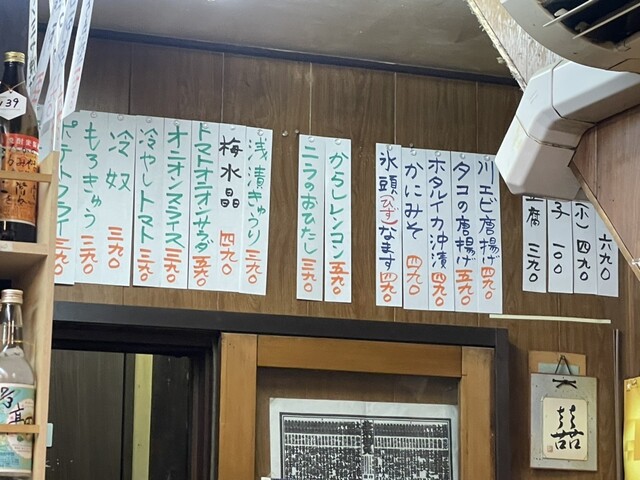 六九〇
(小) 四九〇
子 一〇〇
豆腐 三九〇
川エビ唐揚げ 四九〇
タコの唐揚げ 五九〇
ホタルイカ沖漬 四九〇
かにみそ 四九〇
氷頭(ひず)なます 四九〇
からしレンコン 五九〇
ニラのおひたし 三九〇
浅漬きゅうり 三九〇
梅水晶 四九〇
トマトオニオンサラダ 五九〇
オニオンスライス 三九〇
冷やしトマト 三九〇
冷奴 三九〇
もろきゅう 三九〇
ポテトフライ 三九〇
囍